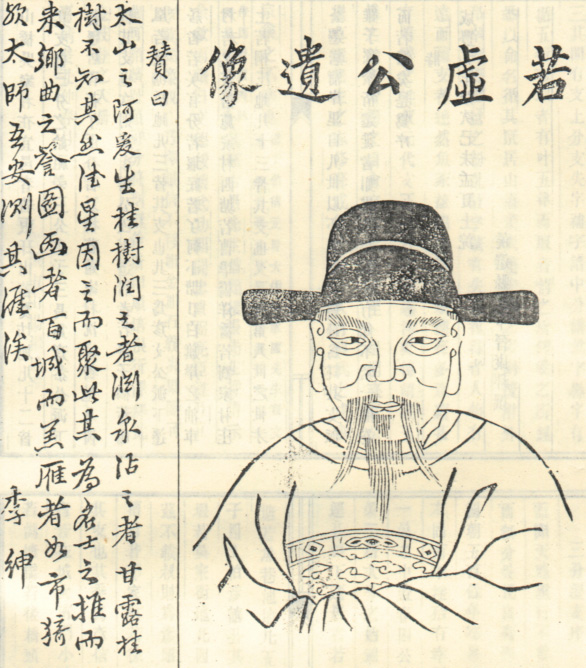 若虛公遺像
贊曰
太山之阿爰生桂樹潤之者渊泉沾之者甘露桂
樹不知其然德星因之而聚此其為名士之推而
来鄉曲之譽圖画者百城而羔雁者如市猗
歟太師吾安測其涯涘 李紳